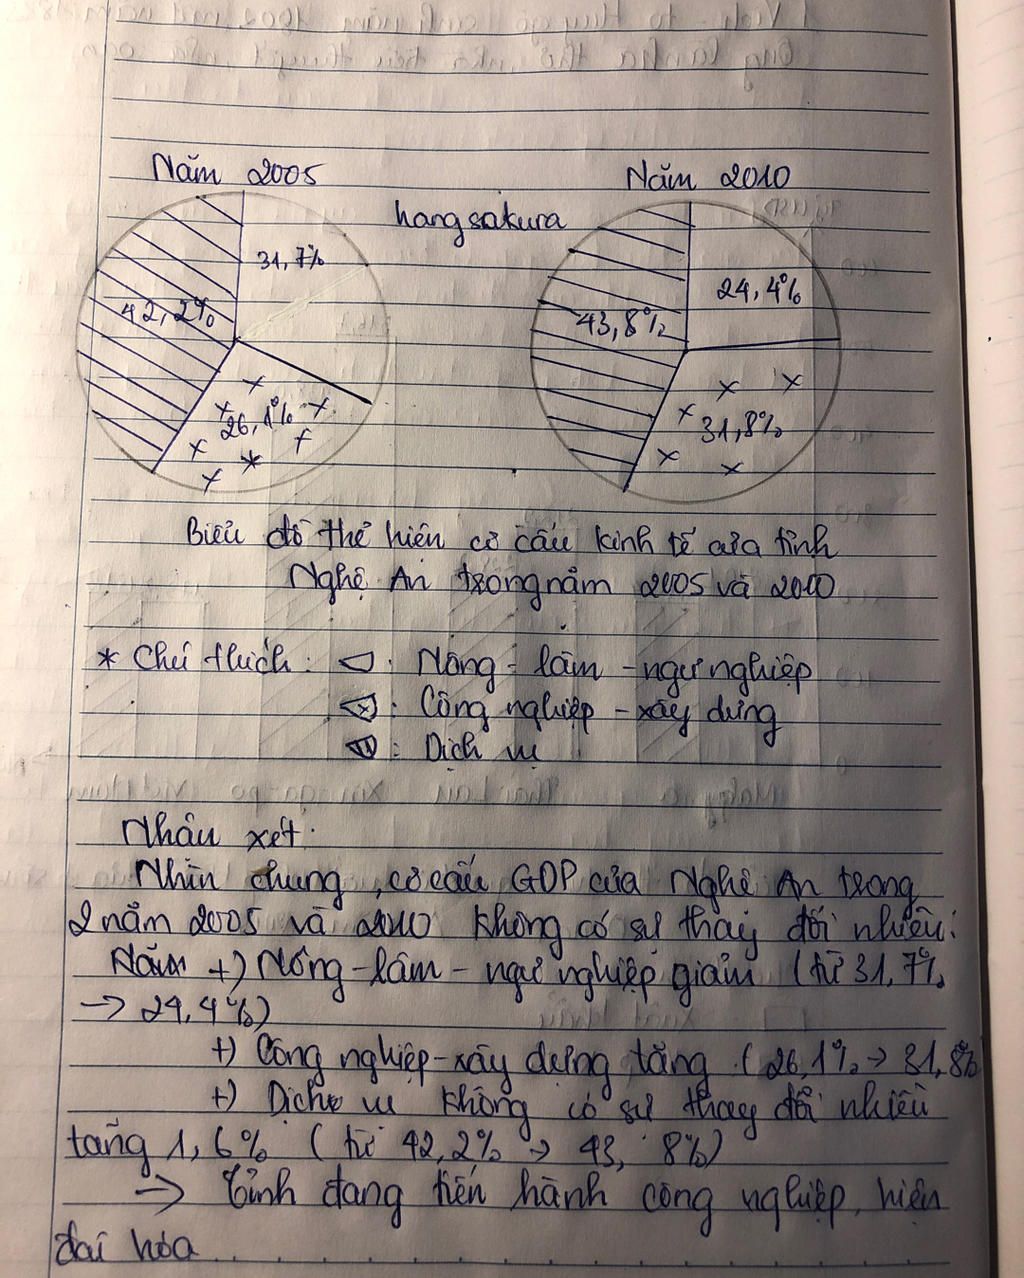 Năm 2005
Năm 2010
hangsakura
31,7%
42,2%
26,1%
24,4%
43,8%
31,8%
Biểu đồ thể hiện cơ cấu kinh tế của tỉnh
Nghệ An trong năm 2005 và 2010
* Chú thích: : Nông - lâm - ngư nghiệp
: Công nghiệp - xây dựng
: Dịch vụ
Nhận xét:
Nhìn chung, cơ cấu GDP của Nghệ An trong
2 năm 2005 và 2010 không có sự thay đổi nhiều:
Năm +) Nông - lâm - ngư nghiệp giảm (từ 31,7%
→ 24,4%)
+) Công nghiệp - xây dựng tăng (26,1% → 31,8%
+) Dịch vụ không có sự thay đổi nhiều
tăng 1,6% (từ 42,2% → 43,8%)
→ Tỉnh đang tiến hành công nghiệp, hiện
đại hóa